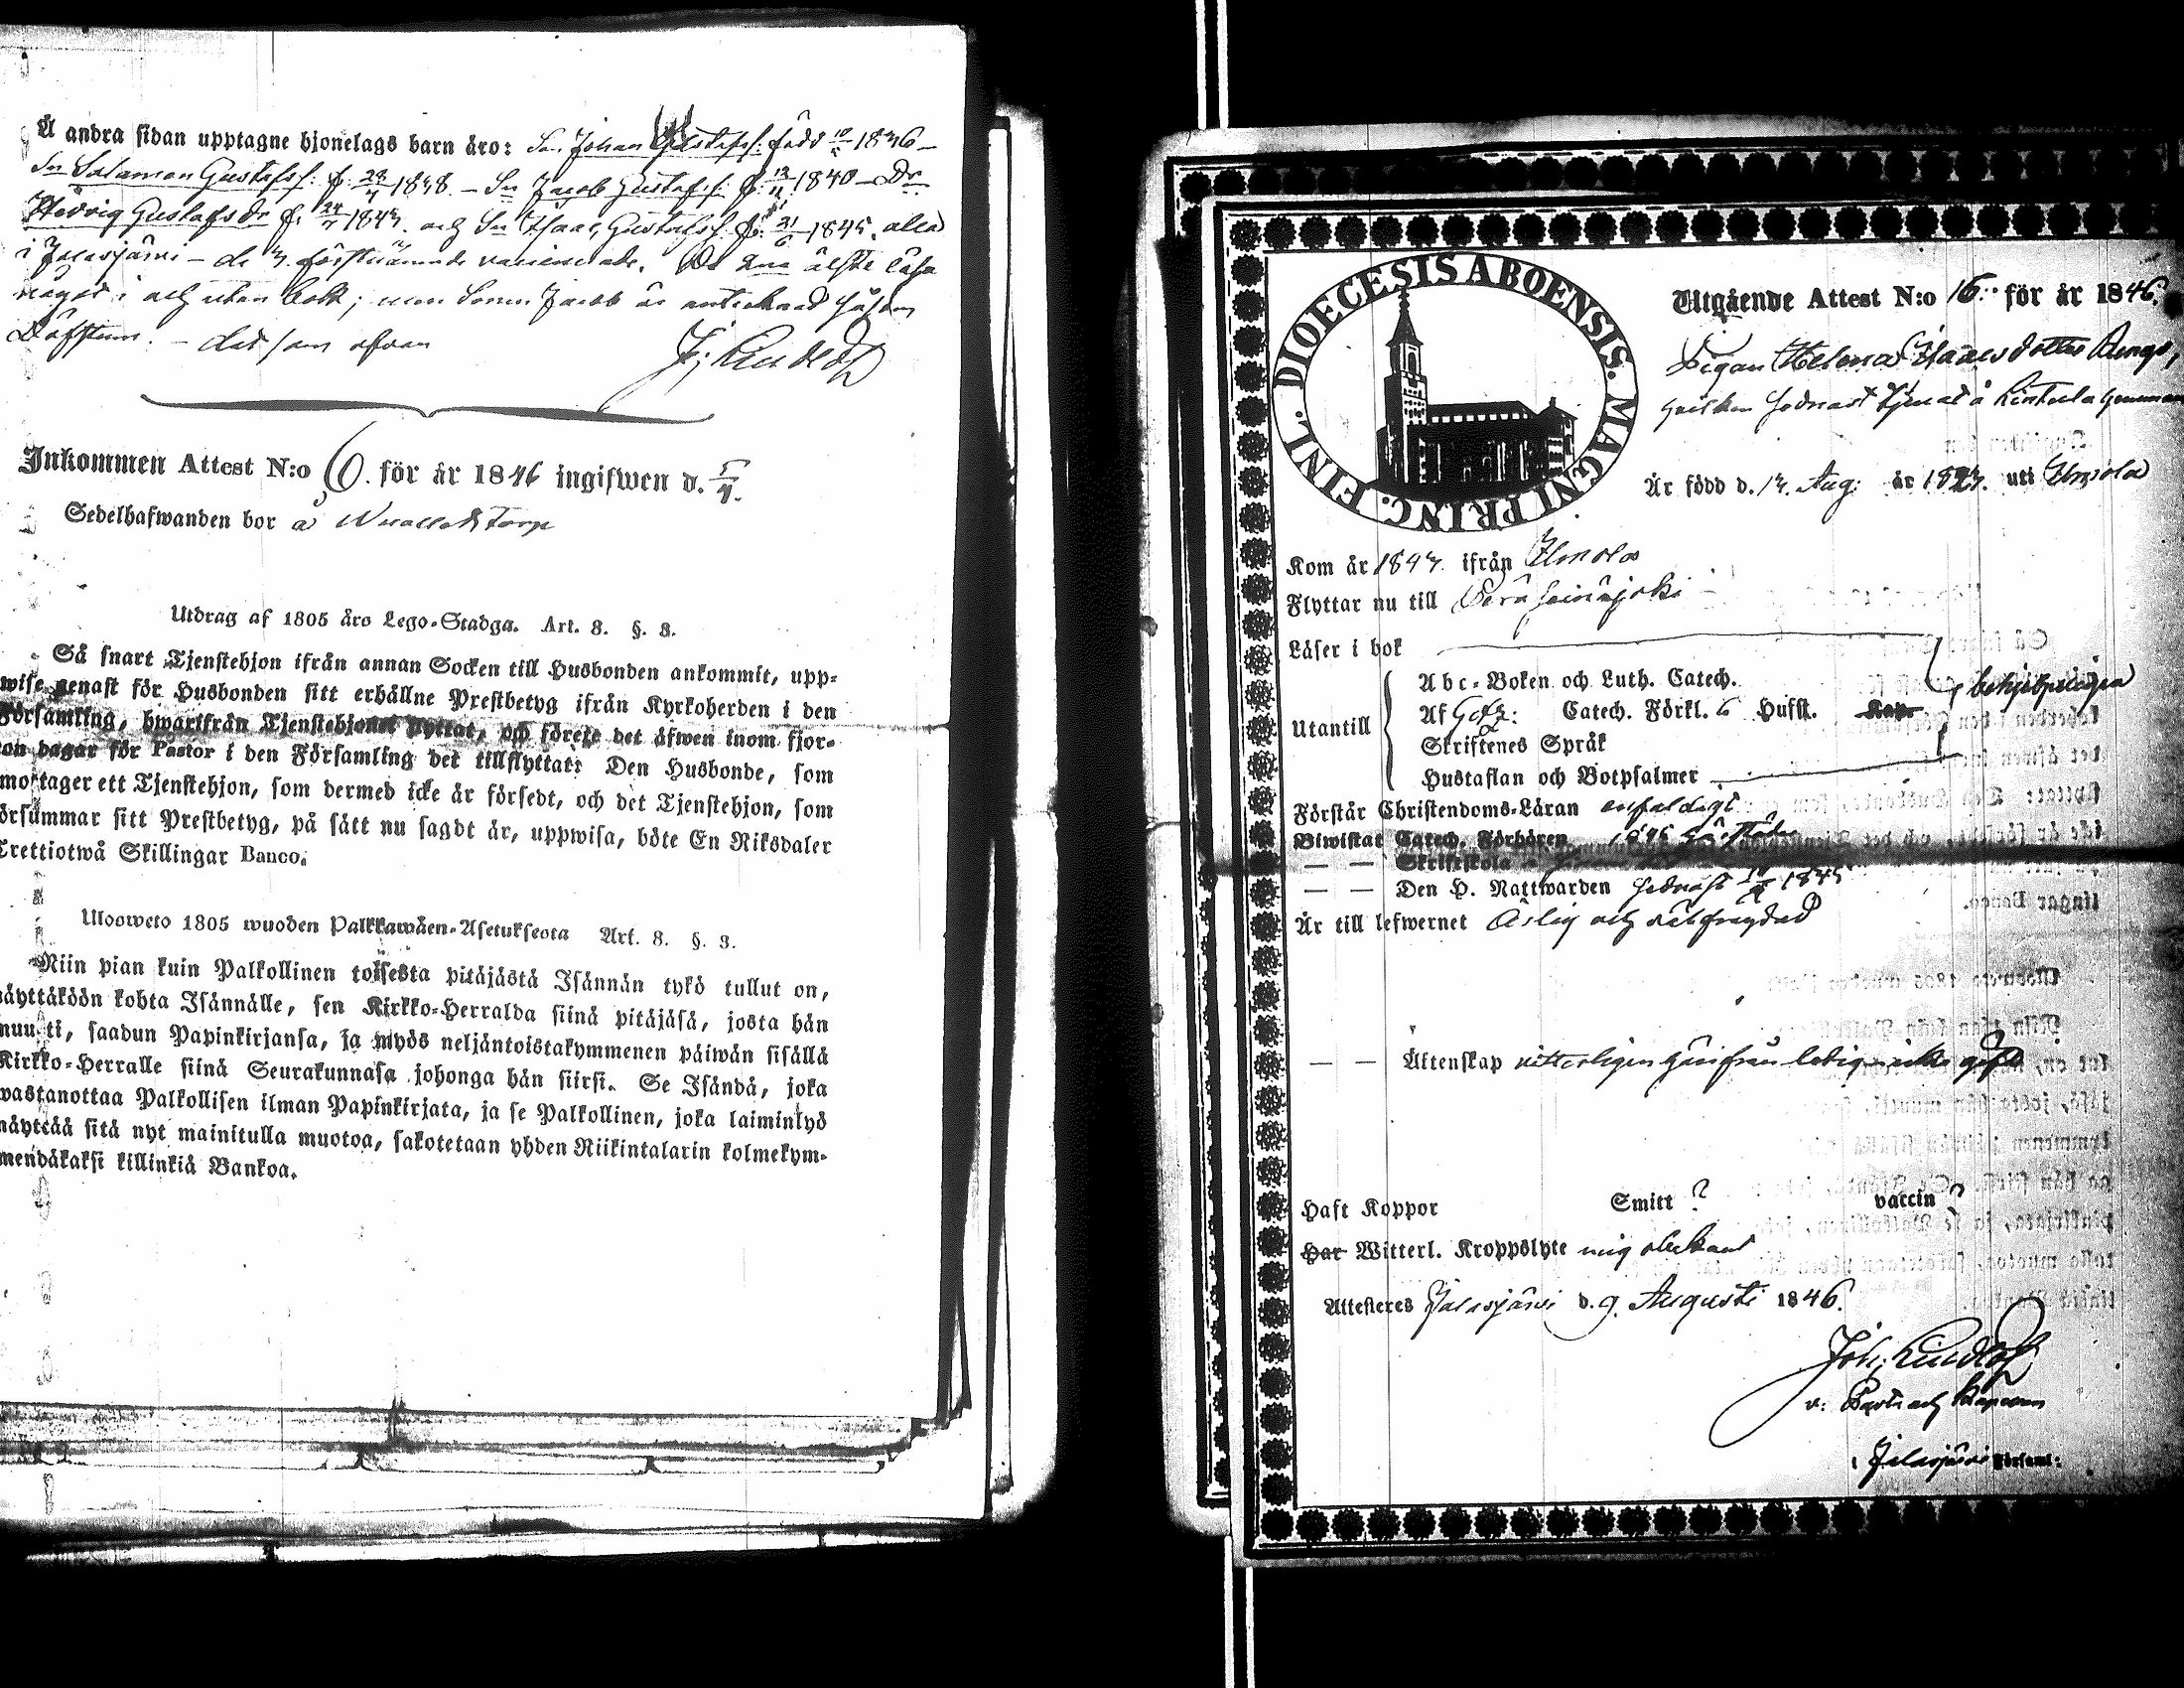 Å andra sidan upptagne hjonelags barn äro: Sn Johan Gustafss: född 10/5 1836 –
Sn Salamon Gustafss: f. 28/4 1838. – Sn Jacob Gustafss: f. 13/11 1840 – Dr
Hedvig Gustafsdr f. 24/7 1843. och Sn Isaac Gustafss. f. 21/6 1845, alla
i Jalasjärvi – de 3 förstnämnde vaccinerade. De två äldste läsa
något i och utan bok; men Sonen Jacob är antecknad såsom
Döfstum. – dat som ofvan
J. Lindlöf
Inkommen Attest N:o 6. för år 1846 ingifwen d. 5/4.
Sedelhafwanden bor å torp
Utdrag af 1805 års Lego-Stadga. Art. 8. §. 3.
Så snart Tjenstehjon ifrån annan Socken till Husbonden ankommit, upp-
wise genast för Husbonden sitt erhållne Prestbetyg ifrån Kyrkoherden i den
Församling, hwarifrån Tjenstehjonet flyttat, och förete det äfwen inom fjor-
ton dagar för Pastor i den Församling det tillflyttat: Den Husbonde, som
emottager ett Tjenstehjon, som dermed icke är försedt, och det Tjenstehjon, som
försummar sitt Prestbetyg, på sätt nu sagdt är, uppwisa, böte En Riksdaler
Trettiotwå Skillingar Banco.
Ulosweto 1805 wuoden Palkkawäen-Asetuksesta Art. 8. §. 3.
Niin pian kuin Palkollinen toisesta pitäjästä Isännän tykö tullut on,
näyttäköön kohta Isännälle, sen Kirkko-Herralda siinä pitäjäsä, josta hän
muutti, saadun Papinkirjansa, ja myös neljäntoistakymmenen päiwän sisällä
Kirkko-Herralle siinä Seurakunnasa johonga hän siirsi. Se Isändä, joka
wastanottaa Palkollisen ilman Papinkirjata, ja se Palkollinen, joka laiminlyö
näyttää sitä nyt mainitulla muotoa, sakotetaan yhden Riikintalarin kolmekym-
mendäkaksi killinkiä Bankoa.
DIOECESIS ABOENSIS. MAGNI PRINC. FINL.
Utgående Attest N:o 16. för år 1846.
Pigan Helena Isaacsdotter
hvilken sednast tjenat å hemman
Är född d. 13. Aug: år 1823. uti Ilmola
Kom år 1843. ifrån Ilmola
Flyttar nu till Peräseinäjoki
Läser i bok
Abc-Boken och Luth. Catech.
Utantill Af Catech. Förkl. Husst. Kap.
Skriftenes Språk
Hustaflan och Botpsalmer
Förstår Christendoms-Läran enfaldigt
Biwistat Catech. Förhören 1846
— — Skriftskola
— — Den H. Nattwarden sednast 1845
Är till lefwernet ärlig och välfrägdad
— — Äktenskap vitterligen härifrån ledig icke gift
Haft Koppor Smitt ? vaccin ?
Har Witterl. Kroppslyte mig obekant
Attesteres Jalasjärvi d. 9. Augusti 1846.
Joh. Lindlöf
v: Past: och Kapellan
i Jalasjärvi Församl: